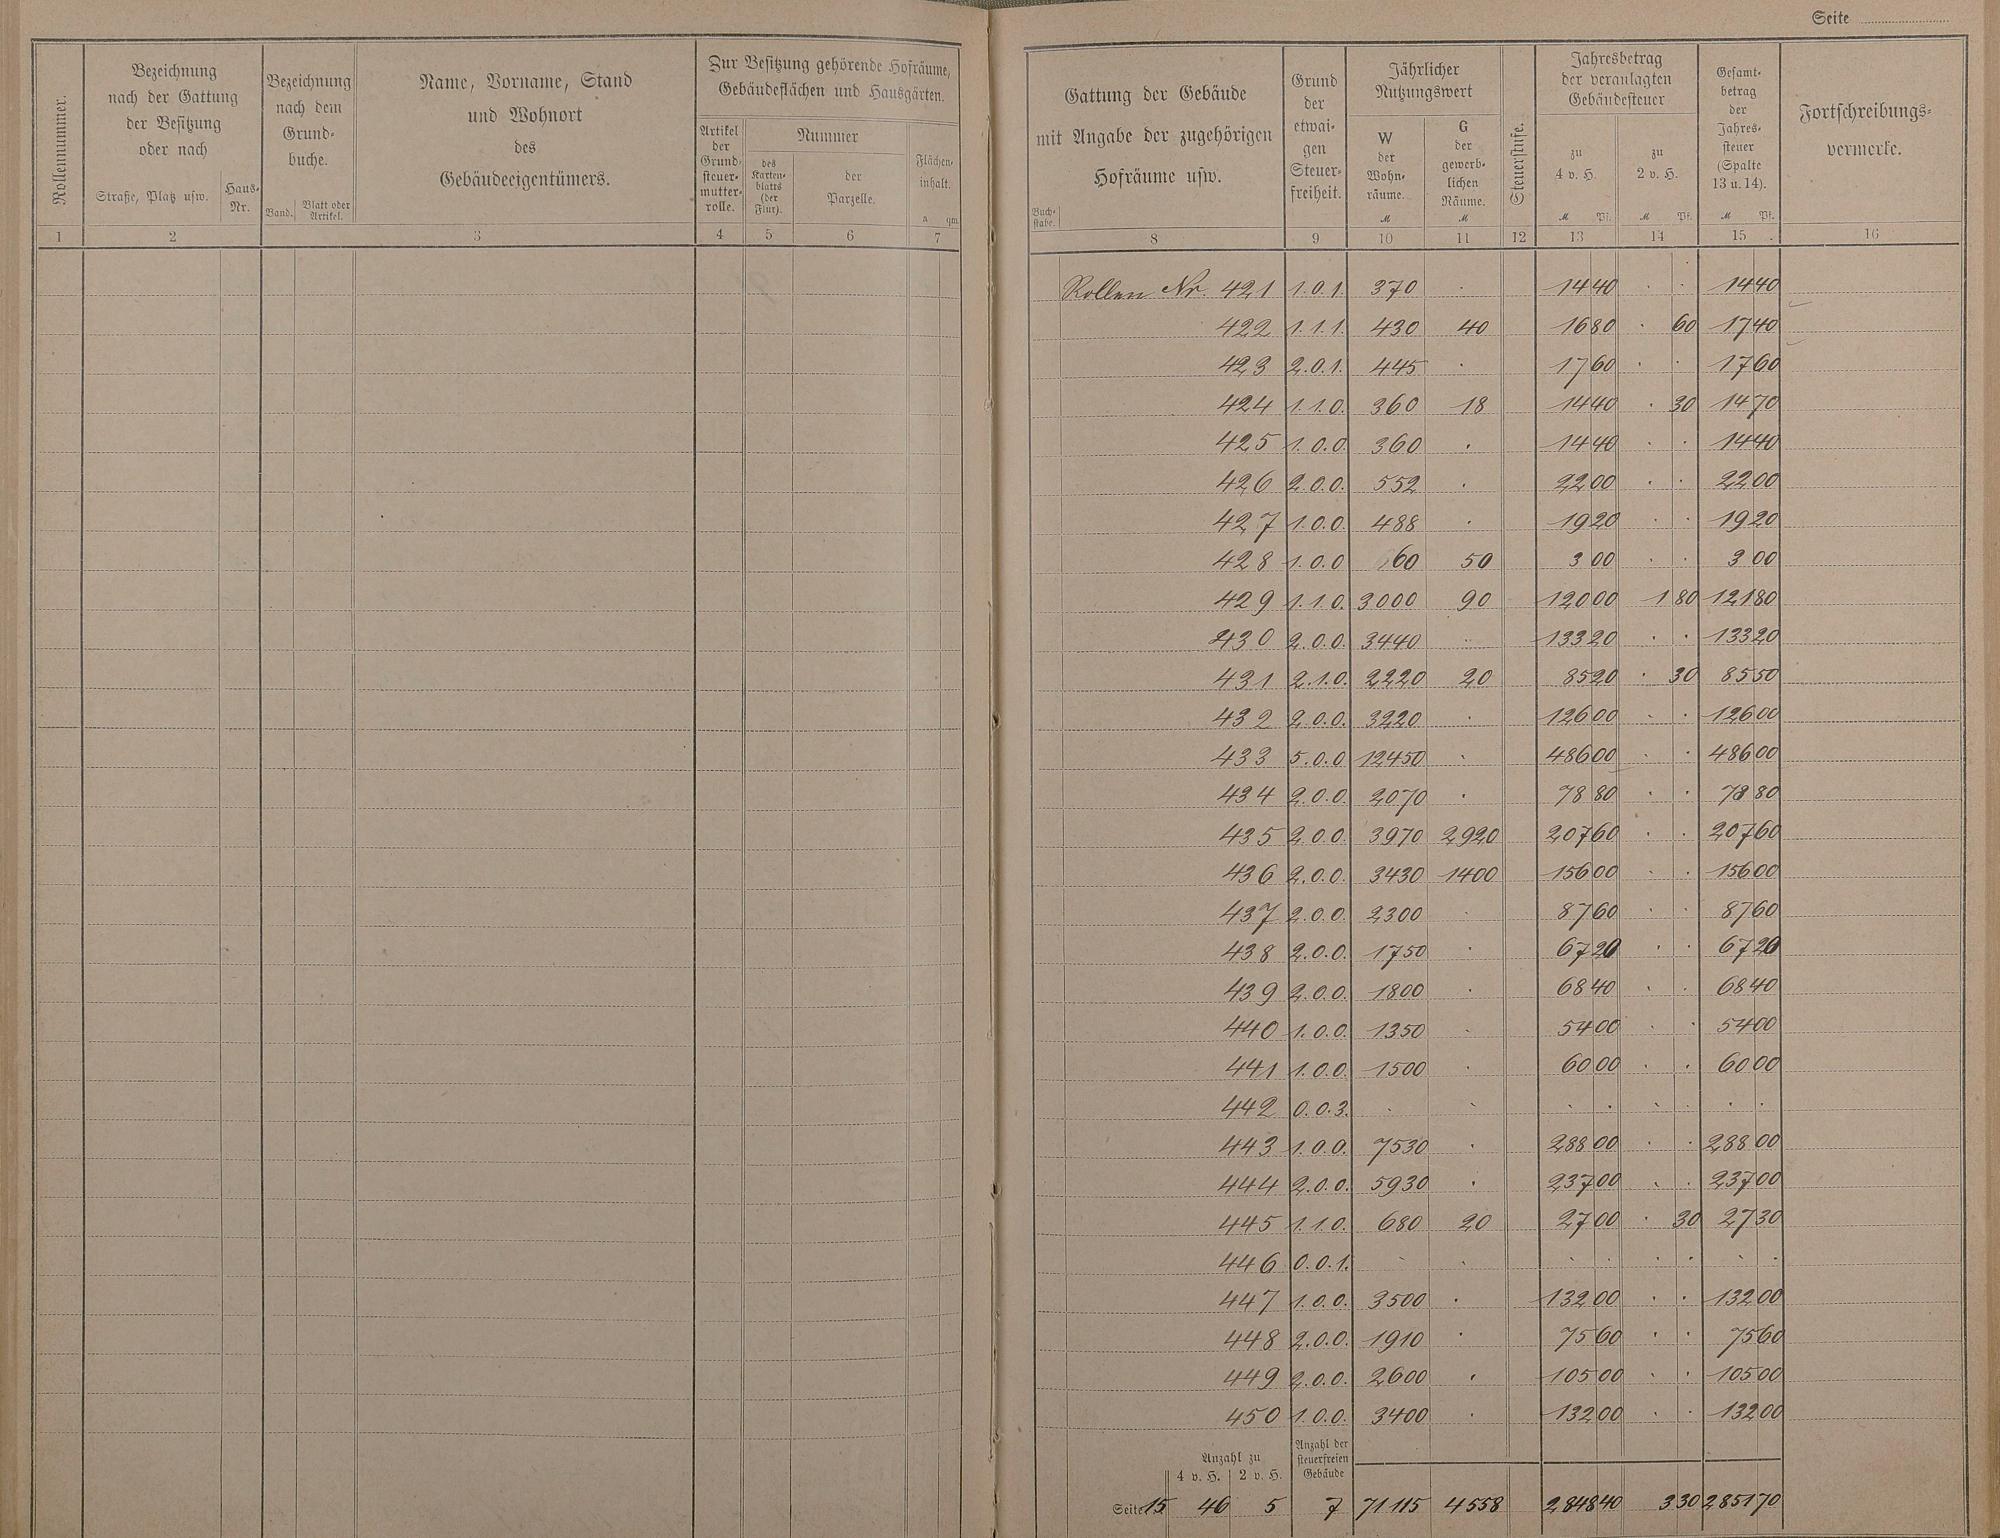 Seite
Rollennummer.
Bezeichnung
nach der Gattung
der Besitzung
oder nach
Straße, Platz usw.
Haus-
Nr.
Bezeichnung
nach dem
Grund-
buche.
Band.
Blatt oder
Artikel.
Name, Vorname, Stand
und Wohnort
des
Gebäudeeigentümers.
Zur Besitzung gehörende Hofräume,
Gebäudeflächen und Hausgärten.
Artikel
der
Grund-
steuer-
mutter-
rolle.
Nummer
des
Karten-
blatts
(der
Flur).
der
Parzelle.
Flächen-
inhalt.
a qm
1 2 3 4 5 6 7
Gattung der Gebäude
mit Angabe der zugehörigen
Hofräume usw.
Buch-
stabe.
Grund
der
etwai-
gen
Steuer-
freiheit.
Jährlicher
Nutzungswert
W
der
Wohn-
räume.
M
G
der
gewerb-
lichen
Räume.
M
Steuerstufe.
Jahresbetrag
der veranlagten
Gebäudesteuer
zu
4 v. H.
M Pf.
zu
2 v. H.
M Pf.
Gesamt-
betrag
der
Jahres-
steuer
(Spalte
13 u. 14).
M Pf.
Fortschreibungs-
vermerke.
8 9 10 11 12 13 14 15 16
Rollen Nr. 421 1.0.1. 370 . 14 40 . . 14 40
422 1.1.1. 430 40 16 80 . 60 17 40
423 2.0.1. 445 . 17 60 . . 17 60
424 1.1.0. 360 18 14 40 . 30 14 70
425 1.0.0. 360 . 14 40 . . 14 40
426 2.0.0. 552 . 22 00 . . 22 00
427 1.0.0. 488 . 19 20 . . 19 20
428 1.0.0 60 50 3 00 . . 3 00
429 1.1.0. 3000 90 120 00 1 80 121 80
430 2.0.0. 3440 . 133 20 . . 133 20
431 2.1.0. 2220 20 85 20 . 30 85 50
432 2.0.0. 3220 . 126 00 . . 126 00
433 5.0.0 12450 . 486 00 . . 486 00
434 2.0.0. 2070 . 78 80 . . 78 80
435 2.0.0. 3970 2920 207 60 . . 207 60
436 2.0.0. 3430 1400 156 00 . . 156 00
437 2.0.0. 2300 . 87 60 . . 87 60
438 2.0.0. 1750 . 67 20 . . 67 20
439 2.0.0. 1800 . 68 40 . . 68 40
440 1.0.0. 1350 . 54 00 . . 54 00
441 1.0.0. 1500 . 60 00 . . 60 00
442 0.0.3. . . . . . . . .
443 1.0.0. 7530 . 288 00 . . 288 00
444 2.0.0. 5930 . 237 00 . . 237 00
445 1.1.0. 680 20 27 00 . 30 27 30
446 0.0.1. . . . . . . . .
447 1.0.0. 3500 . 132 00 . . 132 00
448 2.0.0. 1910 . 75 60 . . 75 60
449 2.0.0. 2600 . 105 00 . . 105 00
450 1.0.0. 3400 . 132 00 . . 132 00
Anzahl zu
4 v. H. 2 v. H.
Anzahl der
steuerfreien
Gebäude
Seite 15 46 5 7 71 115 4558 2848 40 3 30 2851 70